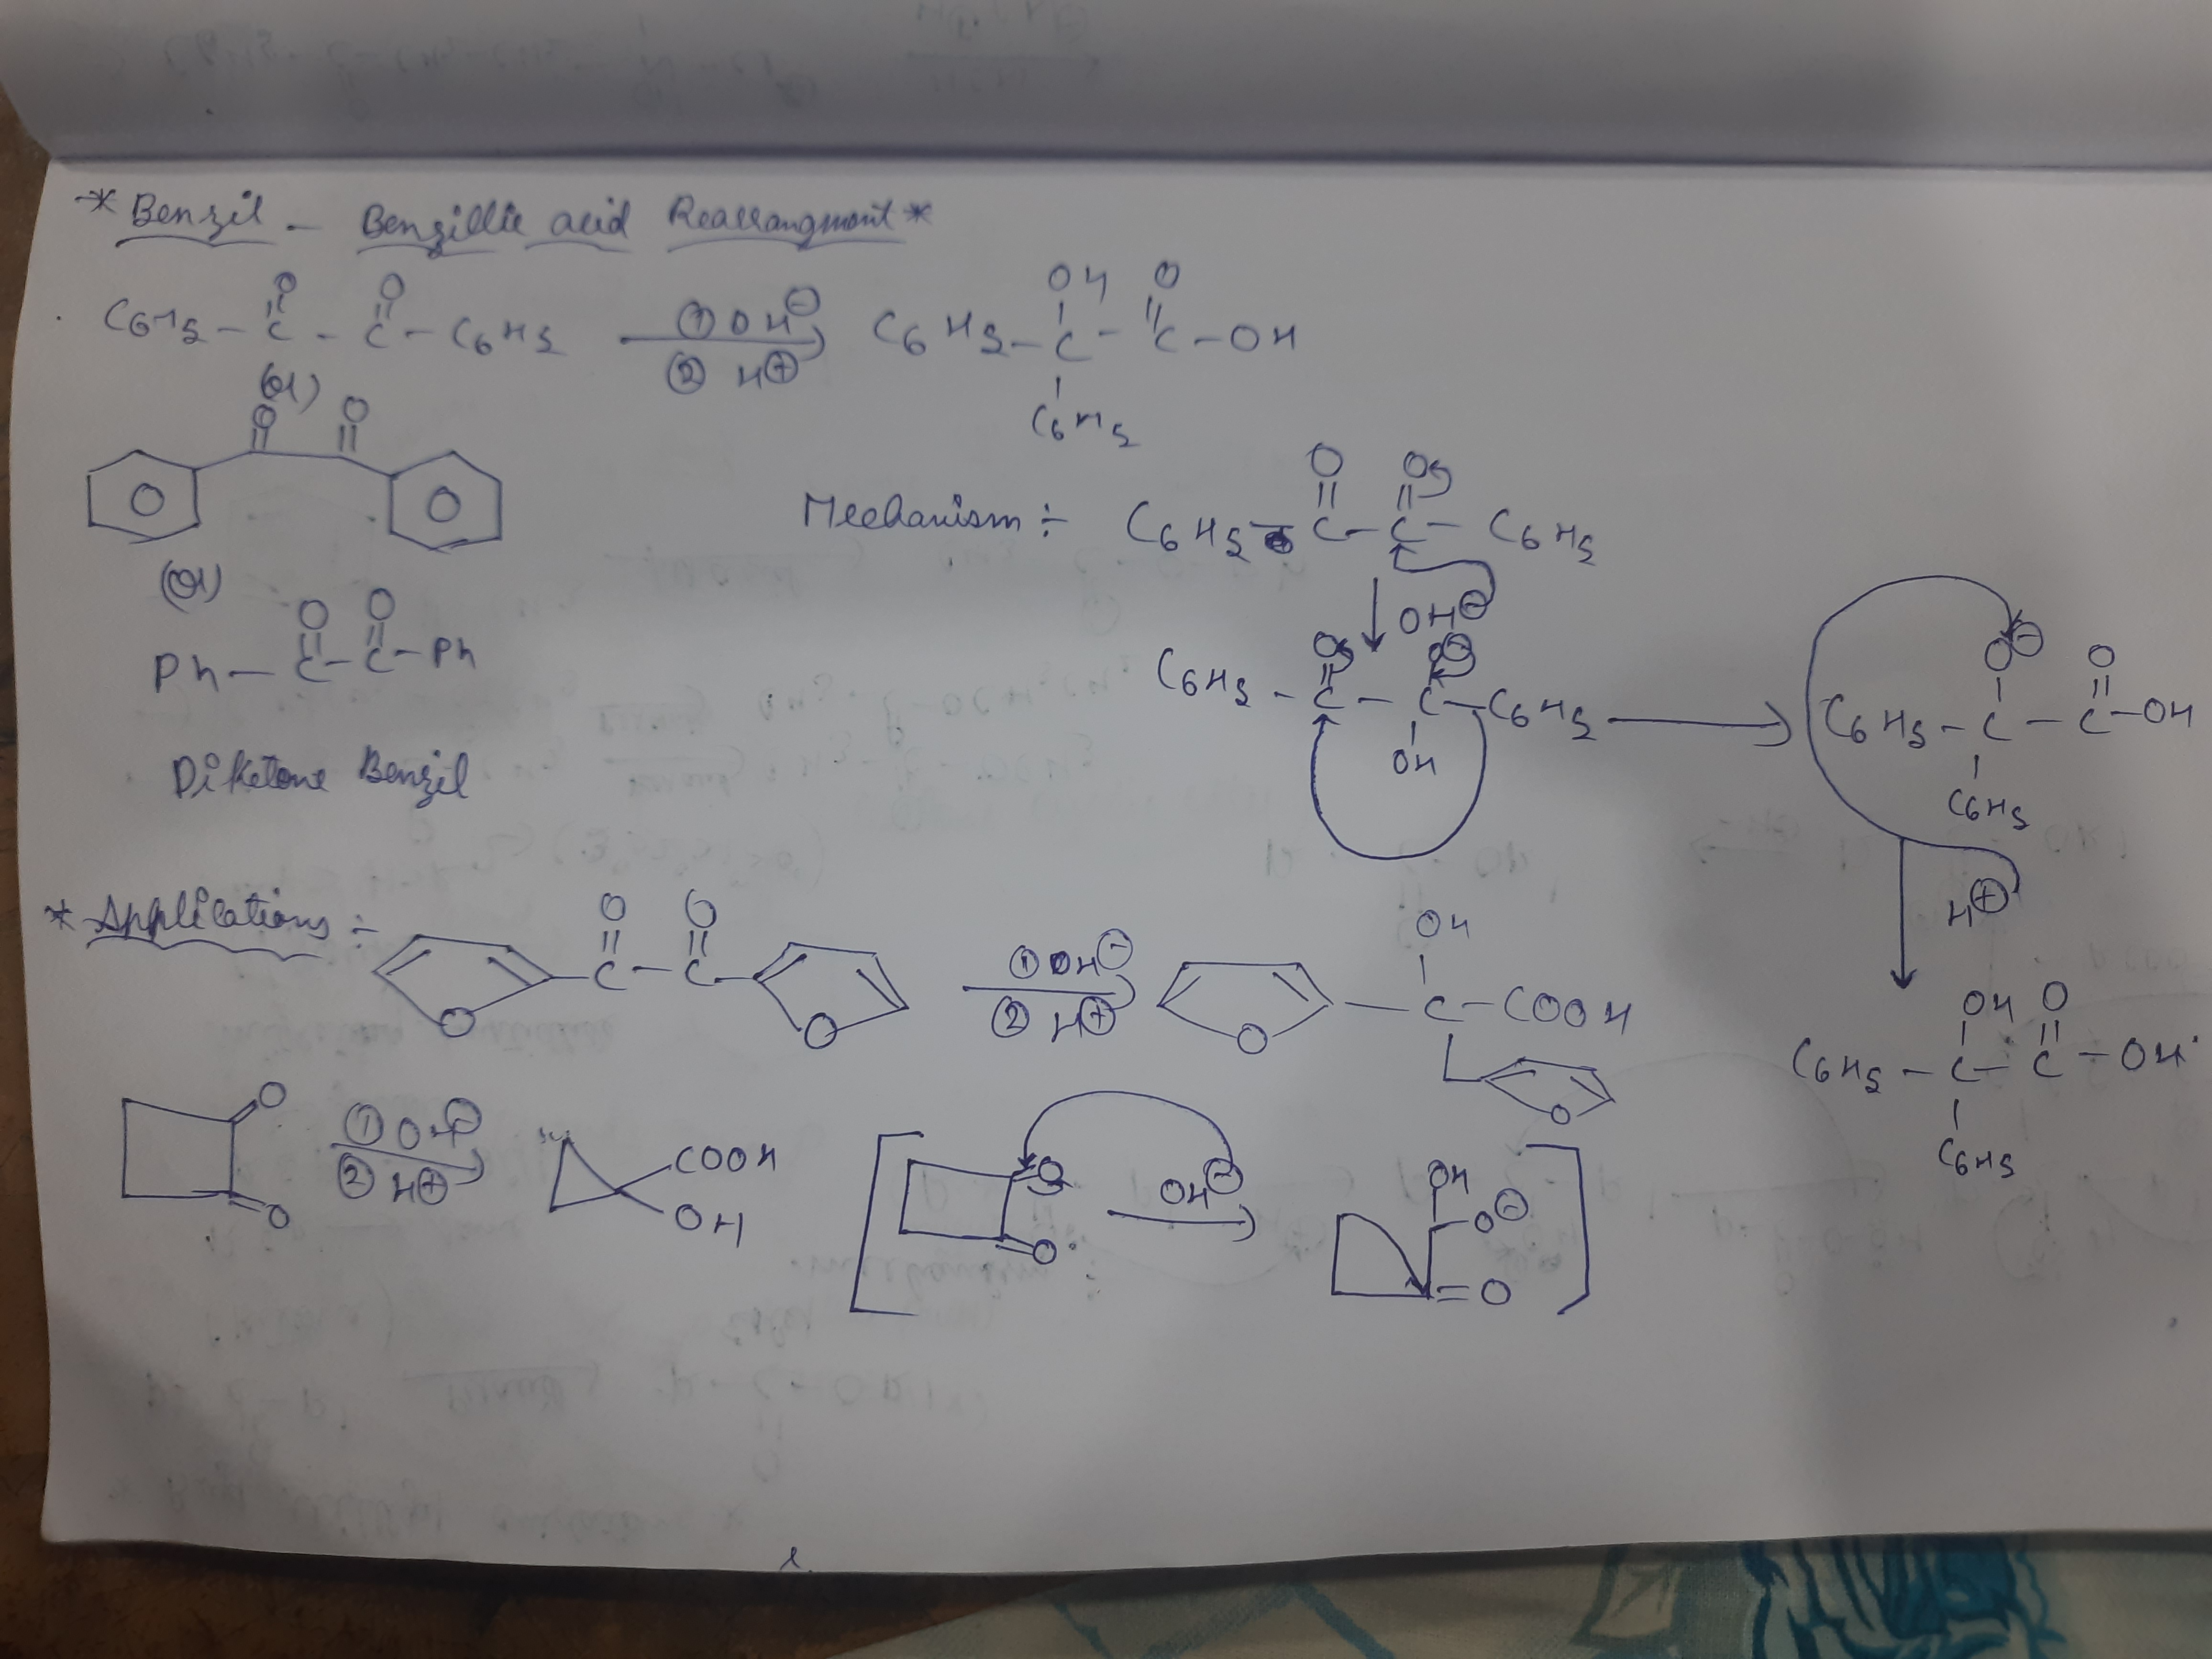 * Benzil - Benzillic acid Rearrangment *
C6H5 - C(=O) - C(=O) - C6H5 → ① OH⊖ ② H⊕ C6H5 - C(OH)(C6H5) - C(=O) - OH
(or)
O O
(or)
Ph - C(=O) - C(=O) - Ph
Diketone Benzil
Mechanism ÷ C6H5 - C(=O) - C(=O) - C6H5
↓ OH⊖
C6H5 - C(=O) - C(O⊖)(OH) - C6H5 → C6H5 - C(O⊖)(C6H5) - C(=O) - OH
↓ H⊕
C6H5 - C(OH)(C6H5) - C(=O) - OH
* Applications :-
O - C(=O) - C(=O) - O → ① OH⊖ ② H⊕ O - C(OH) - COOH
O
O O → ① OH⊖ ② H⊕ COOH OH
[ O O → OH⊖ OH O⊖ = O ]